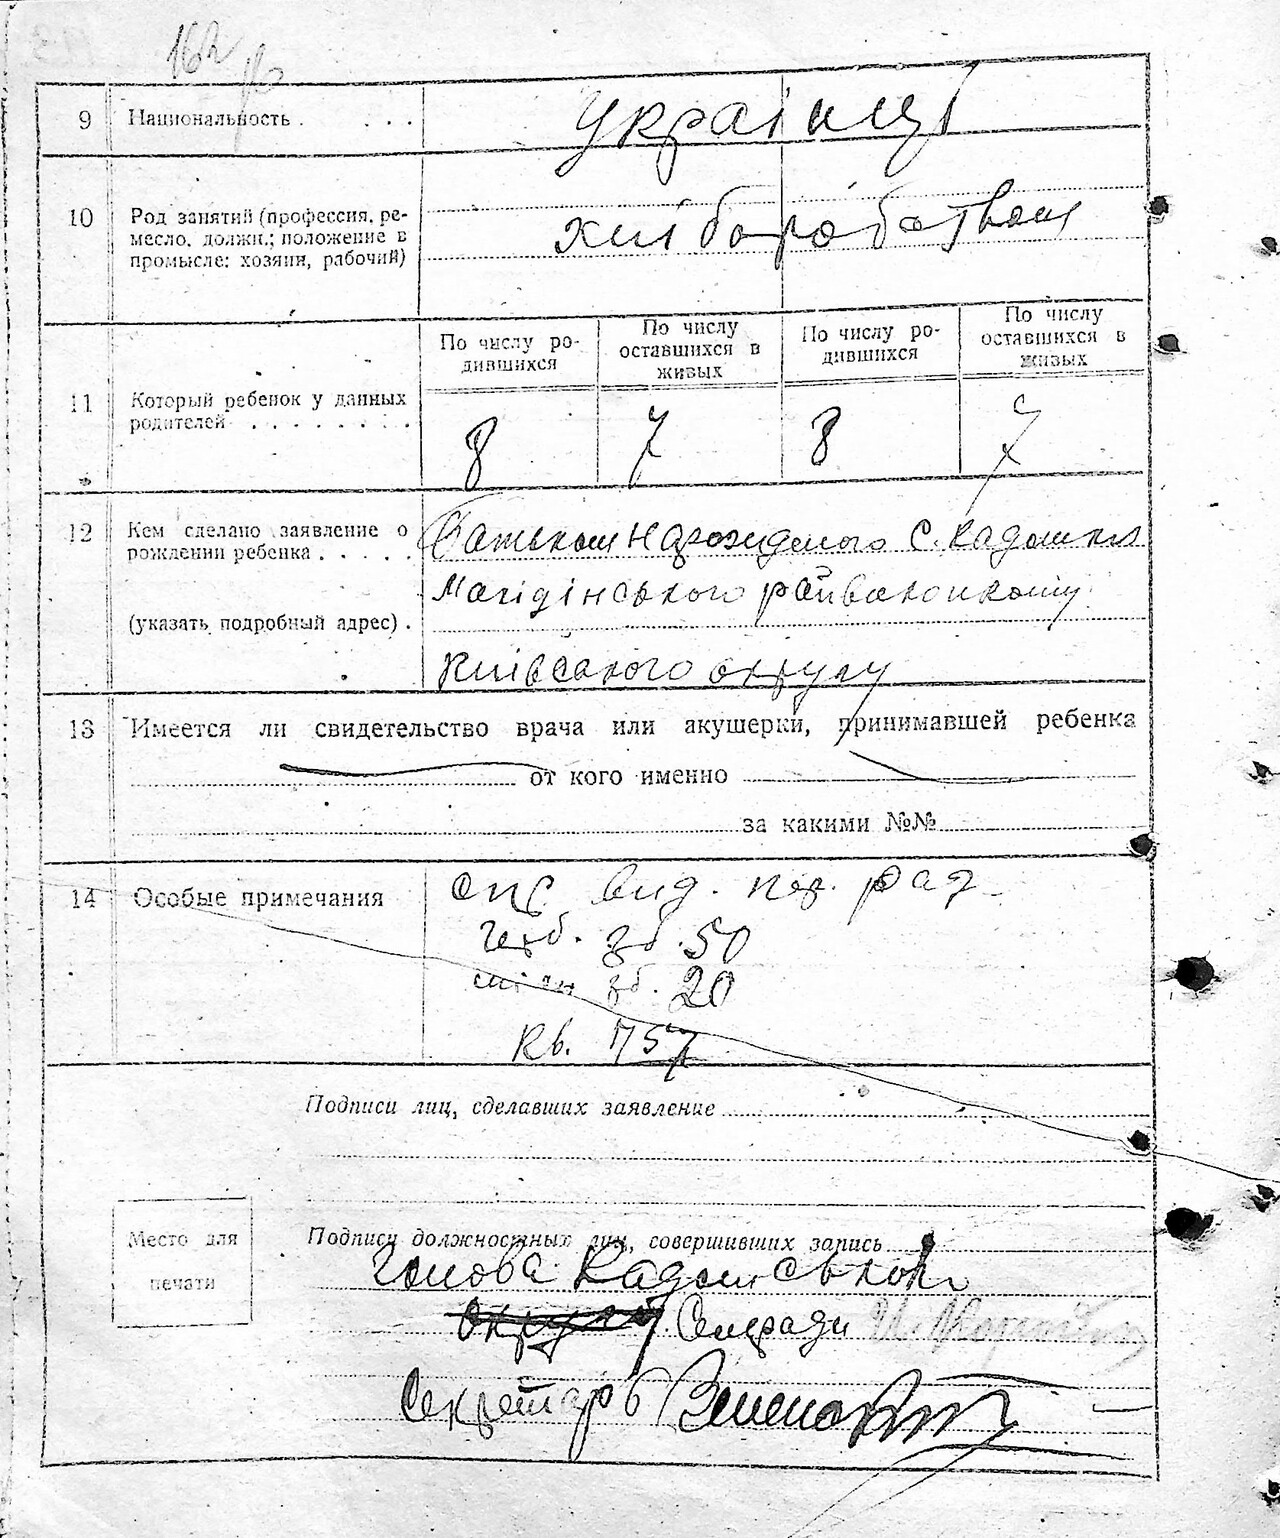 162
9 Национальность . . . . українці
10 Род занятий (профессия, ре-
месло, должн.; положение в
промысле: хозяин, рабочий)
хліборобством
11 Который ребенок у данных
родителей . . . . . . . .
По числу ро-
дившихся
По числу
оставшихся в
живых
По числу ро-
дившихся
По числу
оставшихся в
живых
8 7 8 7
12 Кем сделано заявление о
рождении ребенка . . . .
(указать подробный адрес) .
Батьком народженого С.
райвиконкому
Київского округу
13 Имеется ли свидетельство врача или акушерки, принимавшей ребенка
от кого именно
за какими №№
14 Особые примечания
вид.
герб. зб. 50
зб. 20
Кв. 757
Подписи лиц, сделавших заявление
Место для
печати
Подписи должностных лиц, совершивших запись
Голова
округу Сельради
Секретарь